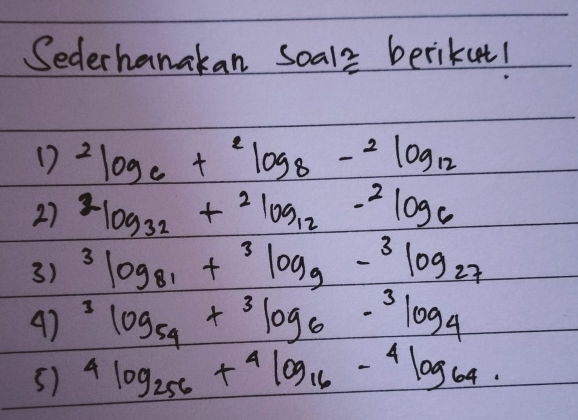 Sederhanakan soal2 berikut!
1) ²log 6 + ²log 8 - ²log 12
2) ²log 32 + ²log 12 - ²log 6
3) ³log 81 + ³log 9 - ³log 27
4) ³log 54 + ³log 6 - ³log 4
5) ⁴log 256 + ⁴log 16 - ⁴log 64.